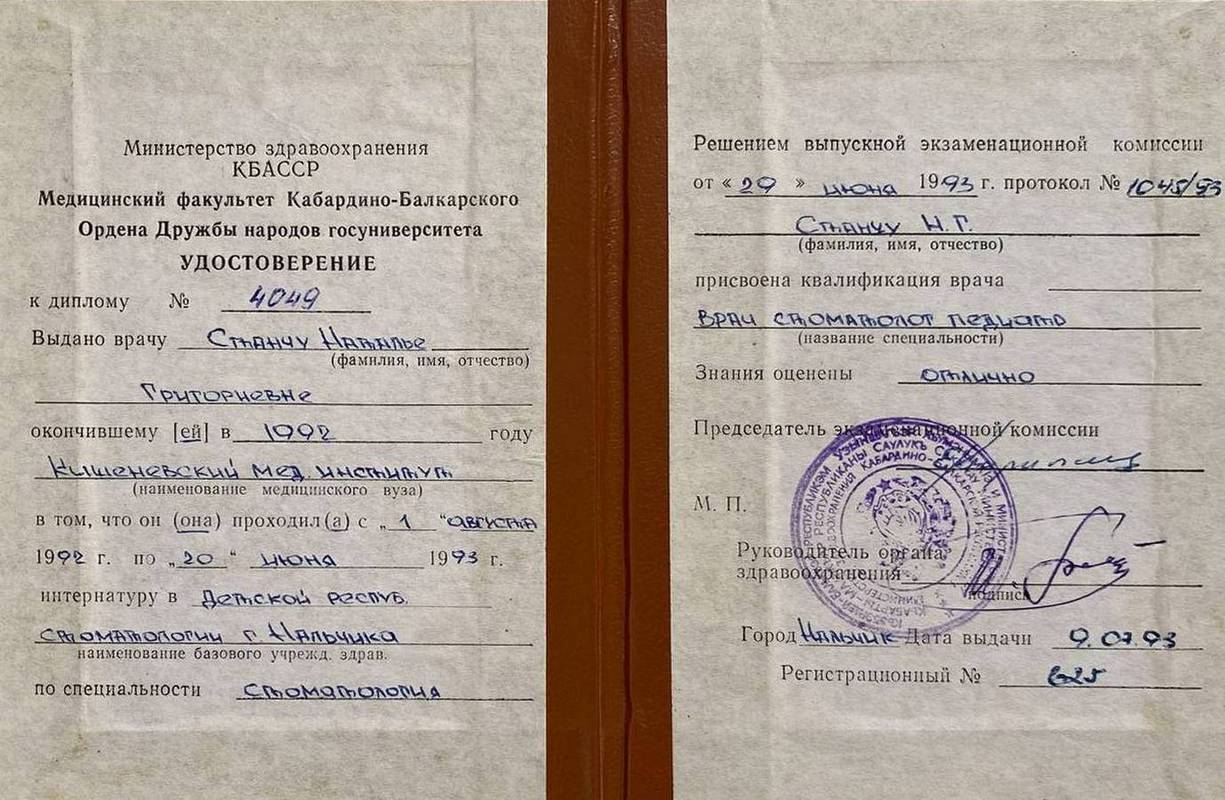 Министерство здравоохранения
КБАССР
Медицинский факультет Кабардино-Балкарского
Ордена Дружбы народов госуниверситета
УДОСТОВЕРЕНИЕ
к диплому № 4049
Выдано врачу Станчу Наталье
(фамилия, имя, отчество)
Григориевне
окончившему [ей] в 1992 году
Кишеневский мед. институт
(наименование медицинского вуза)
в том, что он (она) проходил(а) с „1 " августа
1992 г. по „20 " июня 1993 г.
интернатуру в Детской респуб.
стоматологии г. Нальчика
наименование базового учрежд. здрав.
по специальности стоматология
Решением выпускной экзаменационной комиссии
от « 29 » июня 1993 г. протокол № 1045/93
Станчу Н.Г.
(фамилия, имя, отчество)
присвоена квалификация врача
врач стоматолог педиатр
(название специальности)
Знания оценены отлично
Председатель экзаменационной комиссии
М. П.
Руководитель органа
здравоохранения
подпись
Город Нальчик Дата выдачи 9.07.93
Регистрационный № 625